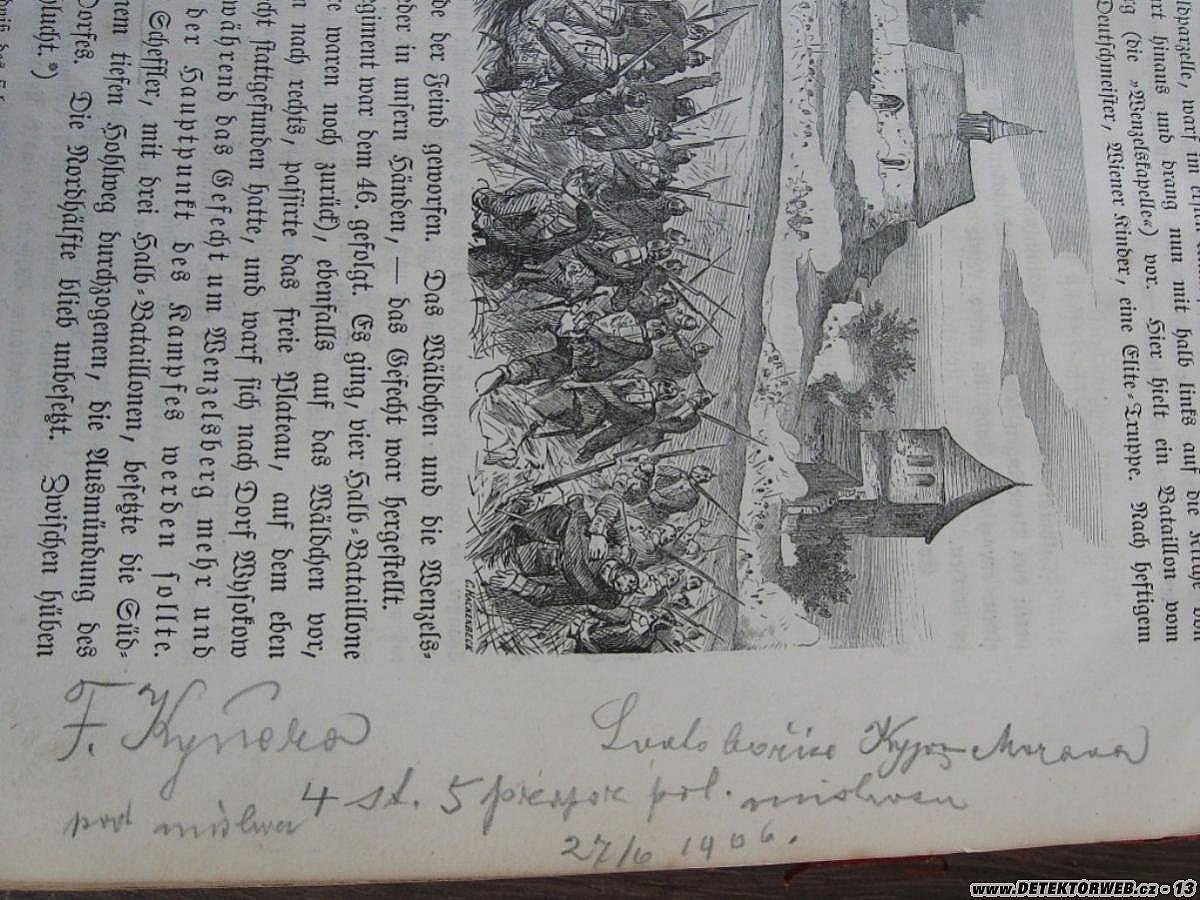 ldparzelle, warf ihn
art hinaus und drang nun mit halb links auf die
g (die »Wenzelskapelle«) vor. Hier hielt ein Bataillon vom
Deutschmeister, Wiener Kinder, eine Elite-Truppe. Nach heftigem
C. HACKENBECK
de der Feind geworfen. Das Wäldchen und die Wenzels-
eder in unsern Händen, — das Gefecht war hergestellt.
egiment war dem 46. gefolgt. Es ging, vier Halb-Bataillone
e waren noch zurück), ebenfalls auf das Wäldchen vor,
n nach rechts, passirte das freie Plateau, auf dem eben
cht stattgefunden hatte, und warf sich nach Dorf Wysokow
während das Gefecht um Wenzelsberg mehr und
der Hauptpunkt des Kampfes werden sollte.
Scheffler, mit drei Halb-Bataillonen, besetzte die Süd-
nem tiefen Hohlweg durchzogenen, die Ausmündung des
Dorfes. Die Nordhälfte blieb unbesetzt. Zwischen hüben
lucht.*)
F. Kyněra
Svatobořice Kyjov Morava
pod
4 st. 5 prapor pol.
27/6 1906.
www.DETEKTORWEB.cz - 13